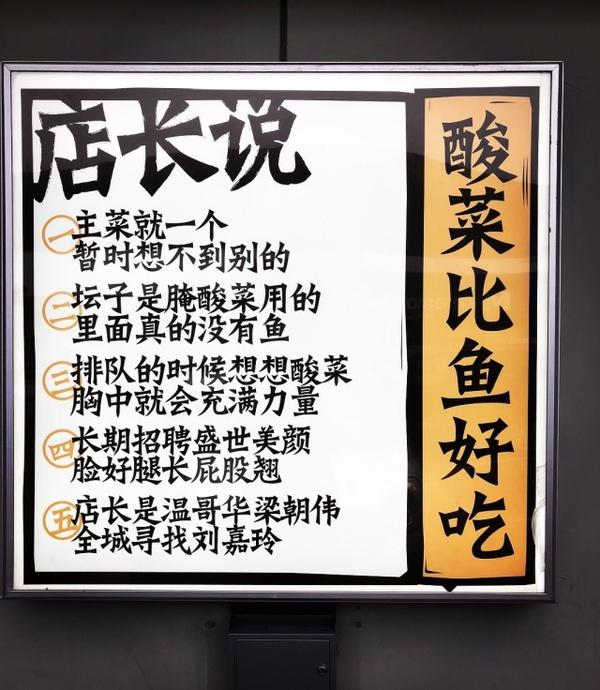 店长说
一 主菜就一个
暂时想不到别的
二 坛子是腌酸菜用的
里面真的没有鱼
三 排队的时候想想酸菜
胸中就会充满力量
四 长期招聘盛世美颜
脸好腿长屁股翘
五 店长是温哥华梁朝伟
全城寻找刘嘉玲
酸菜比鱼好吃